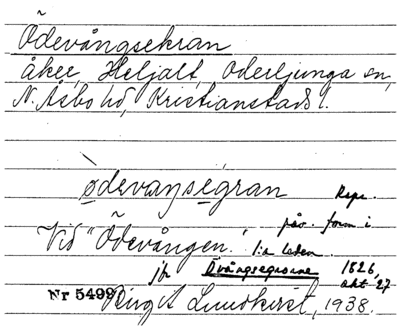 Ödevångsekran
åker, Heljalt, Oderljunga sn,
N. Åsbo hd, Kristianstads l.
ødevaŋsegran
Rspr.
påv. form i
Vid "Ödevången." 1:a leden.
jfr Övångsegroarne 1826,
akt 27
Nr 5499 Birgit Lundkvist, 1938.